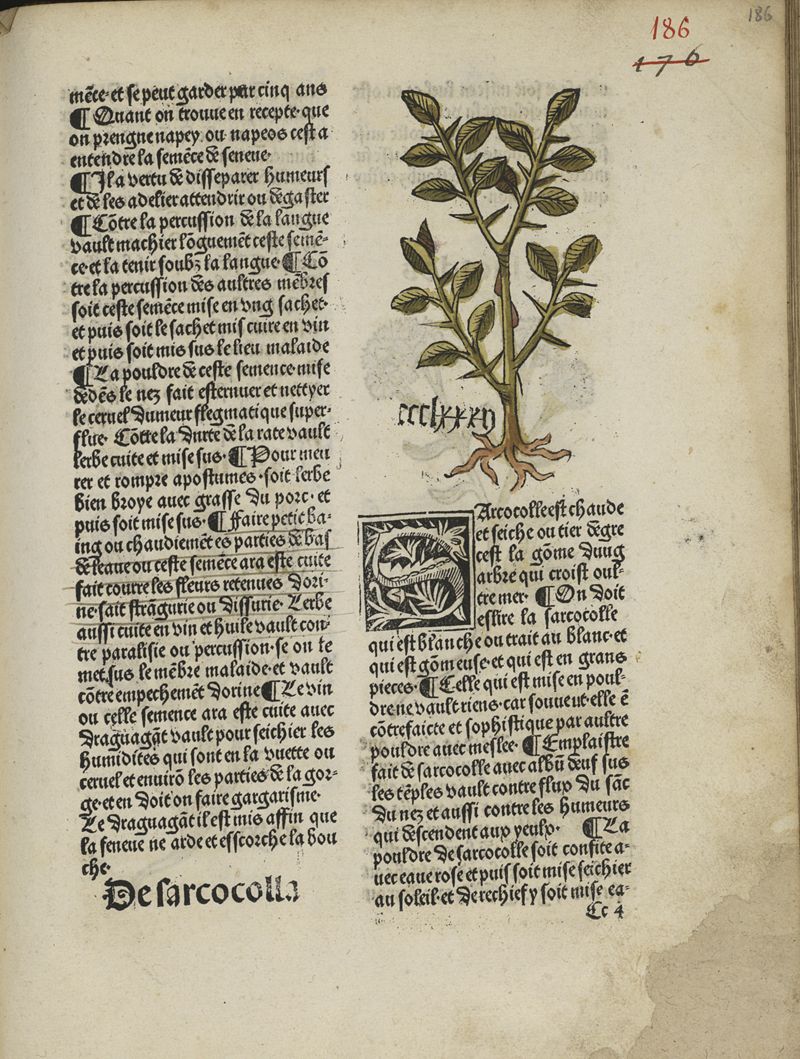 186
186
176
mẽce·et se peut garder par cinq ans
¶ Quant on trouue en recepte·que
on prengne napey ou napeos cest a
entendre la semẽce de seneue·
¶ Il a vertu de disseparer humeurs
et de les adelier attendrir ou degaster
¶ Cõtre la percussion de la langue
vault machier lõguemẽt ceste semẽ-
ce·et la tenir soubz la langue·¶ Cõ
tre la percussion des aultres mẽbres
soit ceste semẽce mise en vng sachet·
et puis soit le sachet mis cuire en vin
et puis soit mis sus le lieu malaide
¶ La pouldre de ceste semence mise
dedẽs le nez fait esternuer et nettyer
le ceruel dumeur flegmatique super-
flue· Cõtte la durte de la rate vault
lerbe cuite et mise sus·¶ Pour meu
rer et rompre apostumes·soit lerbe
bien broye auec grasse du porc·et
puis soit mise sus·¶ ffaire petit ba-
ing ou chaudiemẽt es parties de bas
de leaue ou ceste semẽce ara este cuite
fait courre les fleurs retenues dori-
ne·fait stragurie ou dissurie· Lerbe
aussi cuite en vin et huile vault con-
tre paralisie ou percussion·se on le
met sus le mẽbre malaide·et vault
cõtre empechemẽt dorine ¶ Le vin
ou celle semence ara este cuite auec
draguagãt vault pour seichier les
humidites qui sont en la vuette ou
ceruel et enuirõ les parties de la gor-
ge·et en doit on faire gargarisme·
Le draguagãt il est mis affin que
la seneue ne arde et esscorche la bou
che·
De sarcocolla
cccclxxxij
Sarcocolle est chaude
et seiche ou tier degre
cest la gõme dung
arbre qui croist oul-
tre mer· ¶ On doit
eslire la sarcocolle
qui est blanche ou trait au blanc·et
qui est gõmeuse·et qui est en grans
pieces·¶ Celle qui est mise en poul-
dre ne vault riens·car souuent elle ẽ
cõtrefaicte et sophistique par aultre
pouldre auec meslee· ¶ Emplaistre
fait de sarcocolle auec albũ deuf sus
les tẽples vault contre flux du sãc
du nez et aussi contre les humeurs
qui descendent aux yeulx· ¶ La
pouldre de sarcocolle soit confite a-
uec eaue rose et puis soit mise seichier
au soleil·et derechief y soit mise ea-
Cc 4